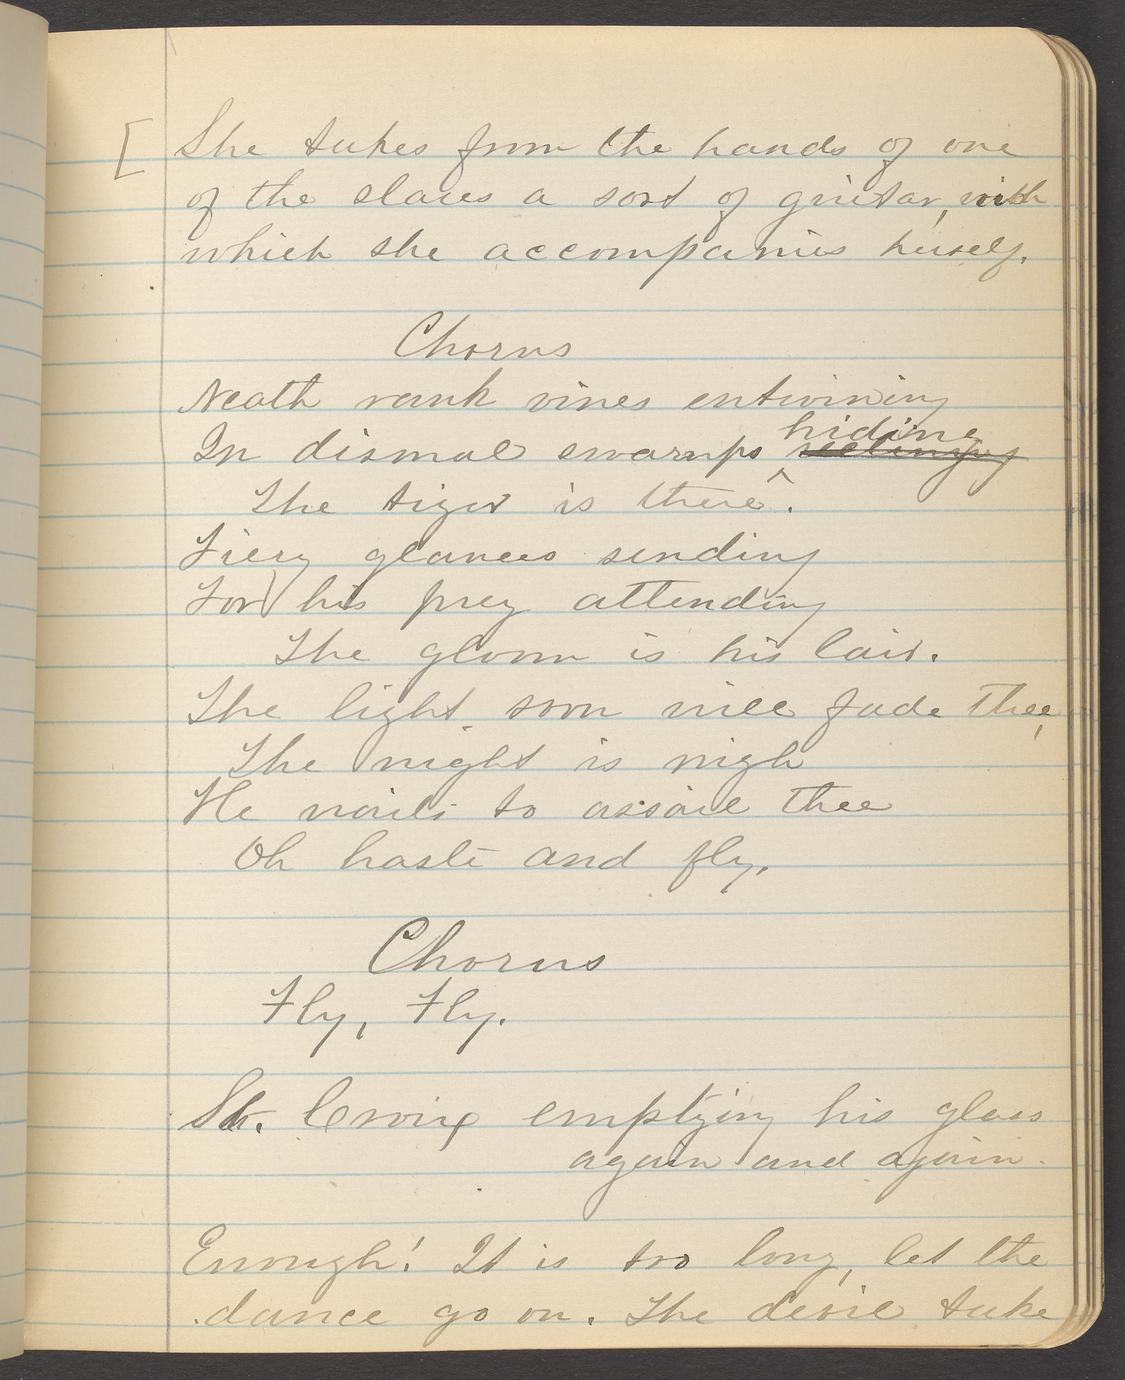 [ She takes from the hands of one
of the slaves a sort of guitar, with
which she accompanies herself.
Chorus
Neath rank vines entwining
In dismal swamps hiding
The tiger is there.
Fiery glances sending
For his prey attending
The gloom is his lair.
The light soon will fade thee,
The night is nigh
He waits to assail thee
Oh haste and fly.
Chorus
Fly, Fly.
St. Croix emptying his glass
again and again.
Enough! It is too long, let the
dance go on. The devil take